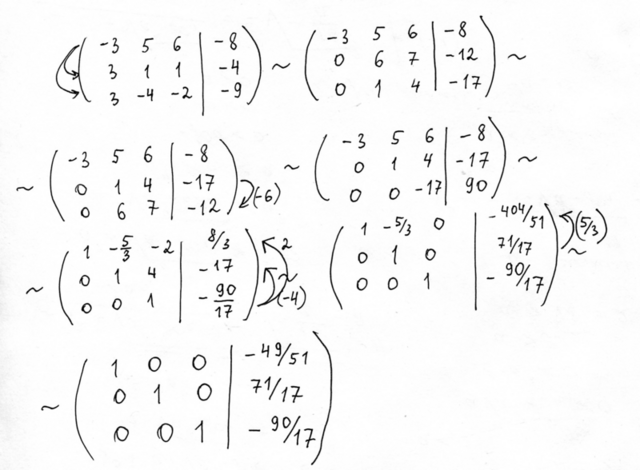 -3 5 6 | -8
3 1 1 | -4
3 -4 -2 | -9
~
-3 5 6 | -8
0 6 7 | -12
0 1 4 | -17
~
~
-3 5 6 | -8
0 1 4 | -17
0 6 7 | -12
(-6)
~
-3 5 6 | -8
0 1 4 | -17
0 0 -17 | 90
~
~
1 -5/3 -2 | 8/3
0 1 4 | -17
0 0 1 | -90/17
2
(-4)
~
1 -5/3 0 | -404/51
0 1 0 | 71/17
0 0 1 | -90/17
(5/3)
~
~
1 0 0 | -49/51
0 1 0 | 71/17
0 0 1 | -90/17